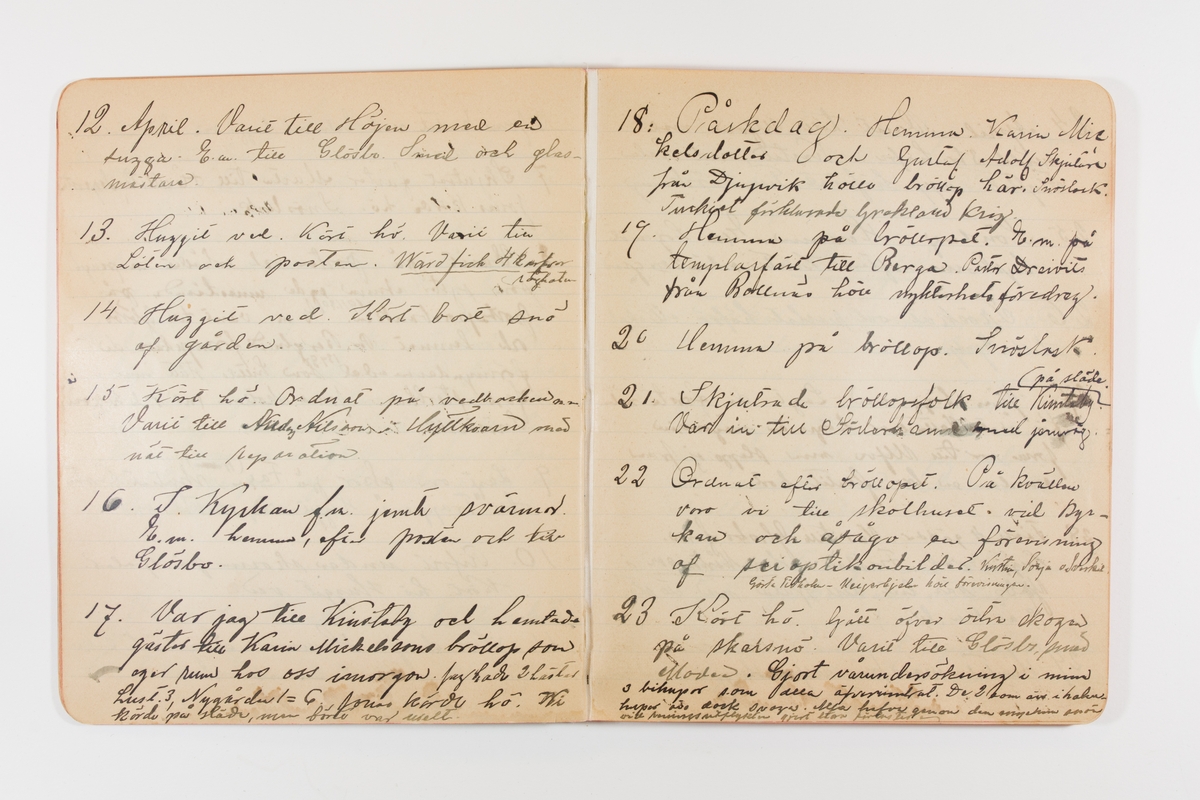 12. April. Varit till Höjen med en
sugga. E.m. till Glösbo. Smed och glas-
mästare.
13. Huggit ved. Kört hö. Varit till
Lölen och posten. Ward fick 4
14 Huggit ved. Kört bort snö
af gården.
15 Kört hö. Ordnat på vedbacken
Varit till Nilsson i Hyttkvarn med
nät till reparation
16. I. Kyrkan f.m. jemte svärmor.
E.m. hemma, efter posten och till
Glösbo.
17. Var jag till Kinstaby och hemtade
gäster till Karin Mickelssons bröllop som
eger rum hos oss imorgon. Jag hade 2 hästar
Lust: 3, Nygårdes 1 = 6 Jonas körde hö. Vi
körde på släde, men före var uselt.
18: Påskdag. Hemma Karin Mic
kelsdotter och Gustaf Adolf Skjutare
från Djupvik höllo bröllop här. Snöslask.
Turkiet förklarade Grekland krig
19. Hemma på bröllopet. E.m. på
templarfäst till Berga. Pastor
från Bollnäs höll nykterhetsföredrag.
20 Hemma på bröllop. Snöslask.
(på släde.
21. Skjutsade bröllopsfolk till Kinstaby.
Var in till Söderhamn med jernväg.
22 Ordnat efter bröllopet. På kvällen
voro vi till skolhuset vid Kyr-
kan och åsågo en förevisning
af scioptikonbilder. Kerstin, Sonja o
höll förevisningen.
23 Kört hö. Gått öfver östra skogen
på skarsnö. Varit till Glösbo, med
Moder. Gjort vårundersökning i min
3 bikupor som alla öfvervintrat. De 2 som äro i halm
kupor äro dock svaga. Alla hafva genom den